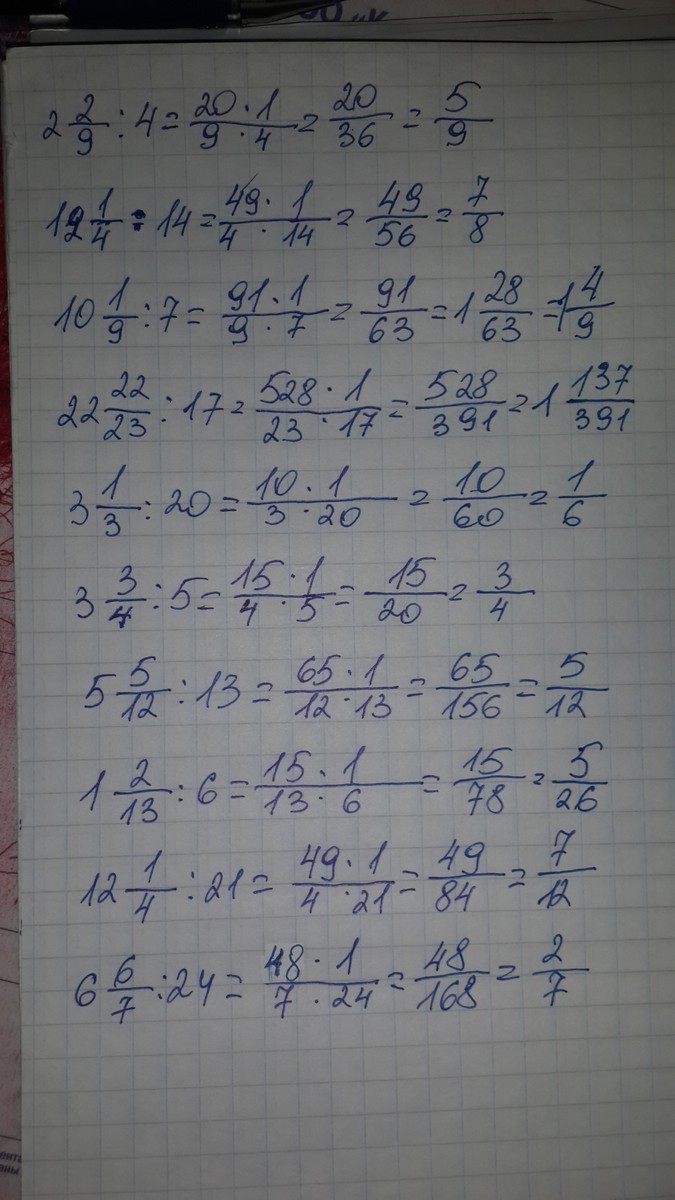 2 2/9 : 4 = 20 · 1 / 9 · 4 = 20/36 = 5/9
12 1/4 : 14 = 49 · 1 / 4 · 14 = 49/56 = 7/8
10 1/9 : 7 = 91 · 1 / 9 · 7 = 91/63 = 1 28/63 = 1 4/9
22 22/23 : 17 = 528 · 1 / 23 · 17 = 528/391 = 1 137/391
3 1/3 : 20 = 10 · 1 / 3 · 20 = 10/60 = 1/6
3 3/4 : 5 = 15 · 1 / 4 · 5 = 15/20 = 3/4
5 5/12 : 13 = 65 · 1 / 12 · 13 = 65/156 = 5/12
1 2/13 : 6 = 15 · 1 / 13 · 6 = 15/78 = 5/26
12 1/4 : 21 = 49 · 1 / 4 · 21 = 49/84 = 7/12
6 6/7 : 24 = 48 · 1 / 7 · 24 = 48/168 = 2/7